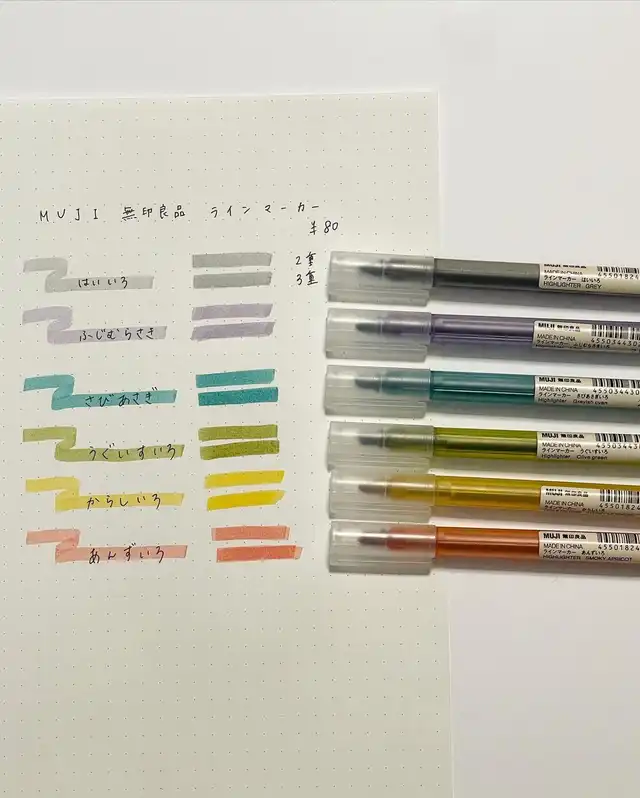 MUJI 無印良品 ラインマーカー
¥80
2重
3重
はいいろ
ふじむらさき
さびあさぎ
うぐいすいろ
からしいろ
あんずいろ
MUJI 無印良品
MADE IN CHINA
ラインマーカー はいいろ
HIGHLIGHTER GREY
4550182
MUJI 無印良品
MADE IN CHINA
4550344430
MUJI 無印良品
MADE IN CHINA
ラインマーカー さびあさぎいろ
Highlighter Greyish cyan
45503443
MUJI 無印良品
MADE IN CHINA
ラインマーカー うぐいすいろ
Highlighter Olive green
45503443
MUJI 無印良品
MADE IN CHINA
45501824
MUJI 無印良品
MADE IN CHINA
ラインマーカー あんずいろ
HIGHLIGHTER SMOKY APRICOT
45501824